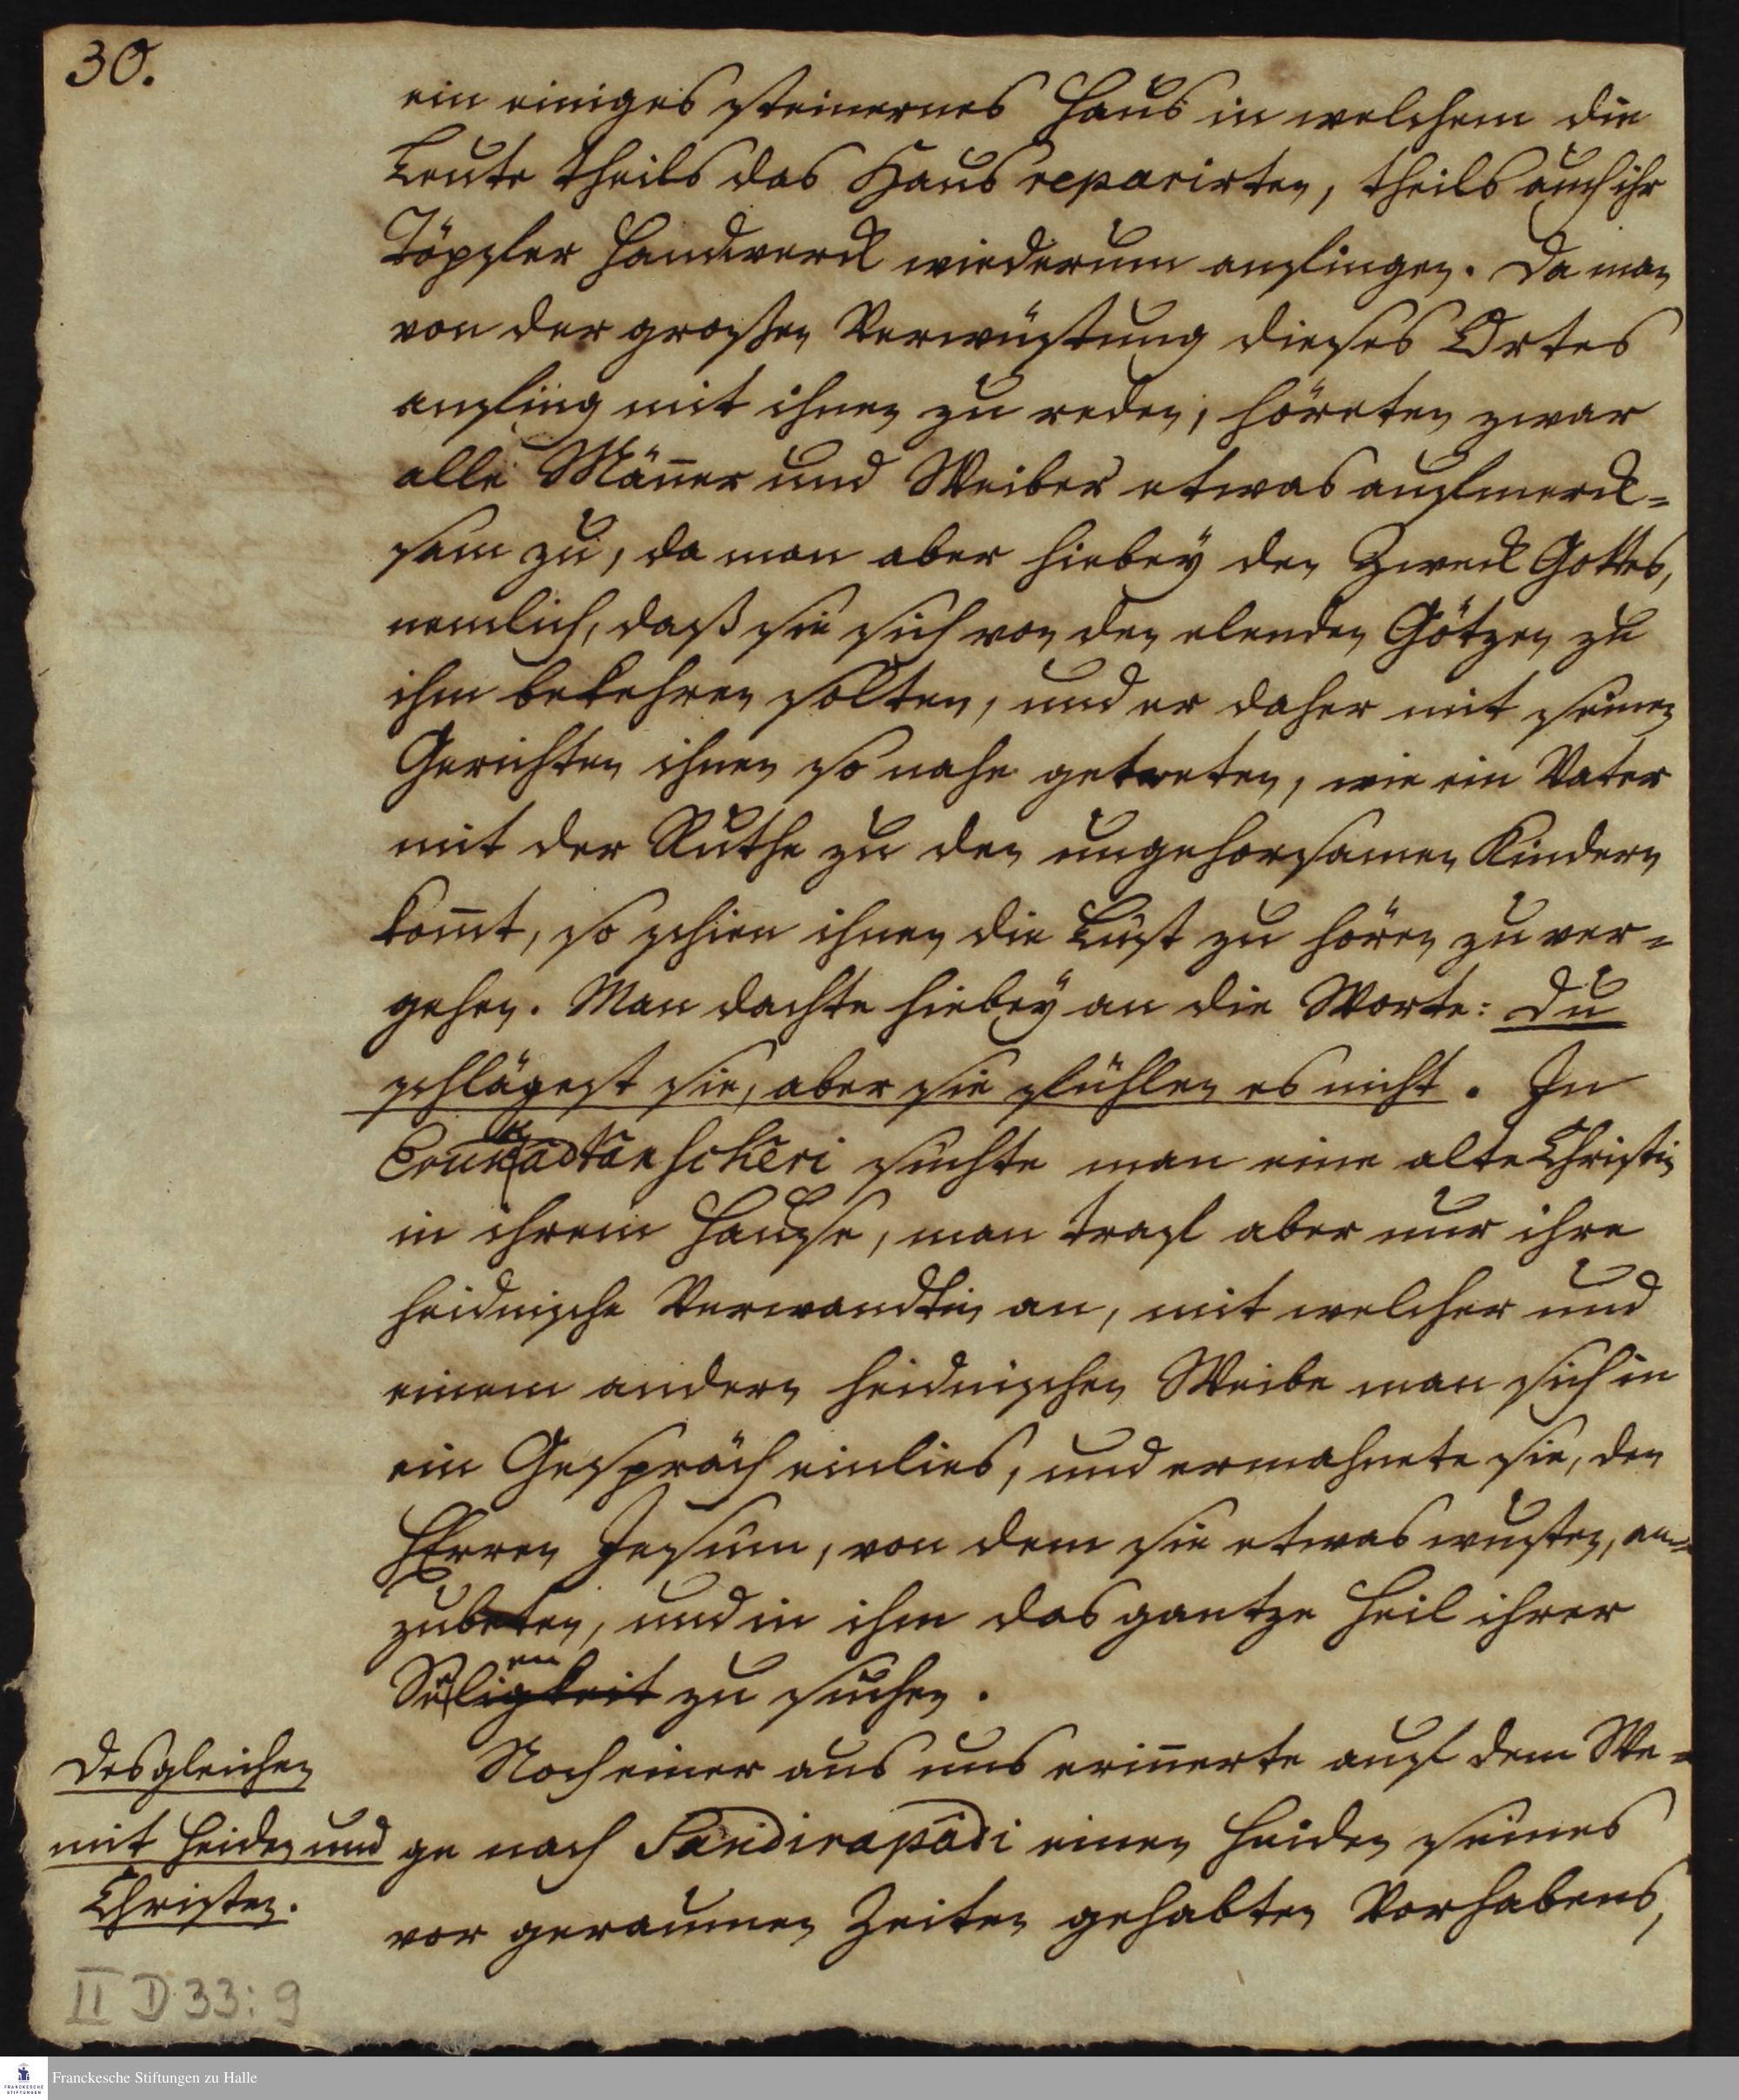 30.
ein einiges steinernes Haus in welchem die
Leute theils das Haus reparirten, theils auch ihr
Töpfer Handwerck wiederum anfingen. Da man
von der großen Verwüstung dieses Ortes
anfing mit ihnen zu reden, höreten zwar
alle Mäñer und Weiber etwas aufmerck=
sam zu, da man aber hiebeÿ den Zweck Gottes,
nemlich, daß sie sich von den elenden Götzen zu
ihm bekehren solten, und er daher mit seinen
Gerichten ihnen so nahe getreten, wie ein Vater
mit der Ruthe zu den ungehorsamen Kindern
kom̄t, so schien ihnen die Lust zu hören zu ver=
gehen. Man dachte hiebeÿ an die Worte: Du
schlägest sie, aber sie fühlen es nicht. In
suchte man eine alte Christin
in ihrem Hause, man traf aber nur ihre
heidnische Verwandtin an, mit welcher und
einem andern heidnischen Weibe man sich in
ein Gespräch einlies, und ermahnete sie, den
HErren Jesum, von dem sie etwas wusten, an=
zubeten, und in ihm das gantze Heil ihrer
Seelen zu suchen.
Desgleichen
mit Heiden und
Christen.
Noch einer aus uns eriñerte auf dem We=
ge nach Sandirapâdi einen Heiden seines
vor geraumen Zeiten gehabten Vorhabens,
II D 33:9
FRANCKESCHE
STIFTUNGEN
Franckesche Stiftungen zu Halle